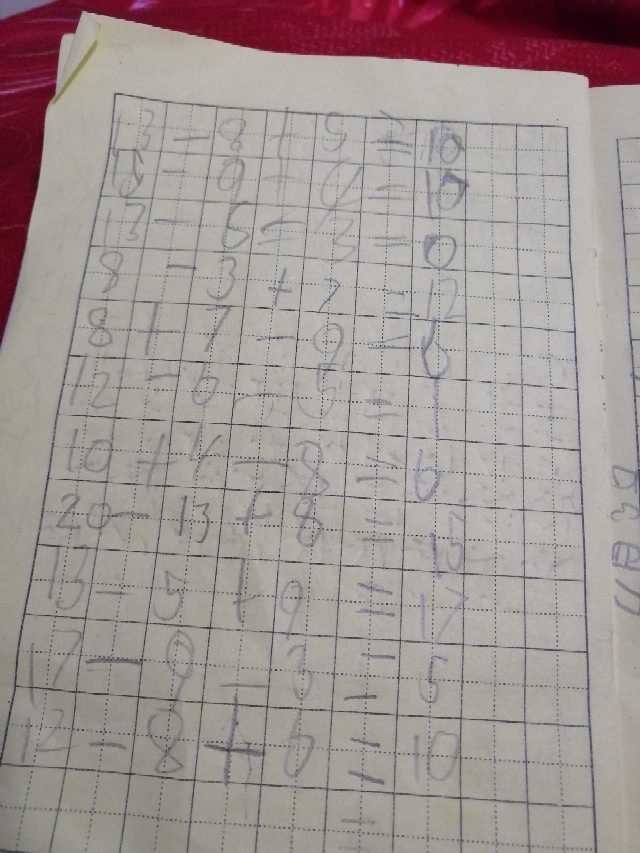 13 - 8 + 5 = 10
- 9 = 10
13 - = 3 = 0
8 - 3 + 7 = 12
8 + 7 - 9 = 6
12 - 6 - 5 = 1
10 + 4 - 8 = 6
20 - 13 + 8 = 15
13 - 5 + 9 = 17
17 - 9 - 3 = 5
12 - 8 + 6 = 10
=